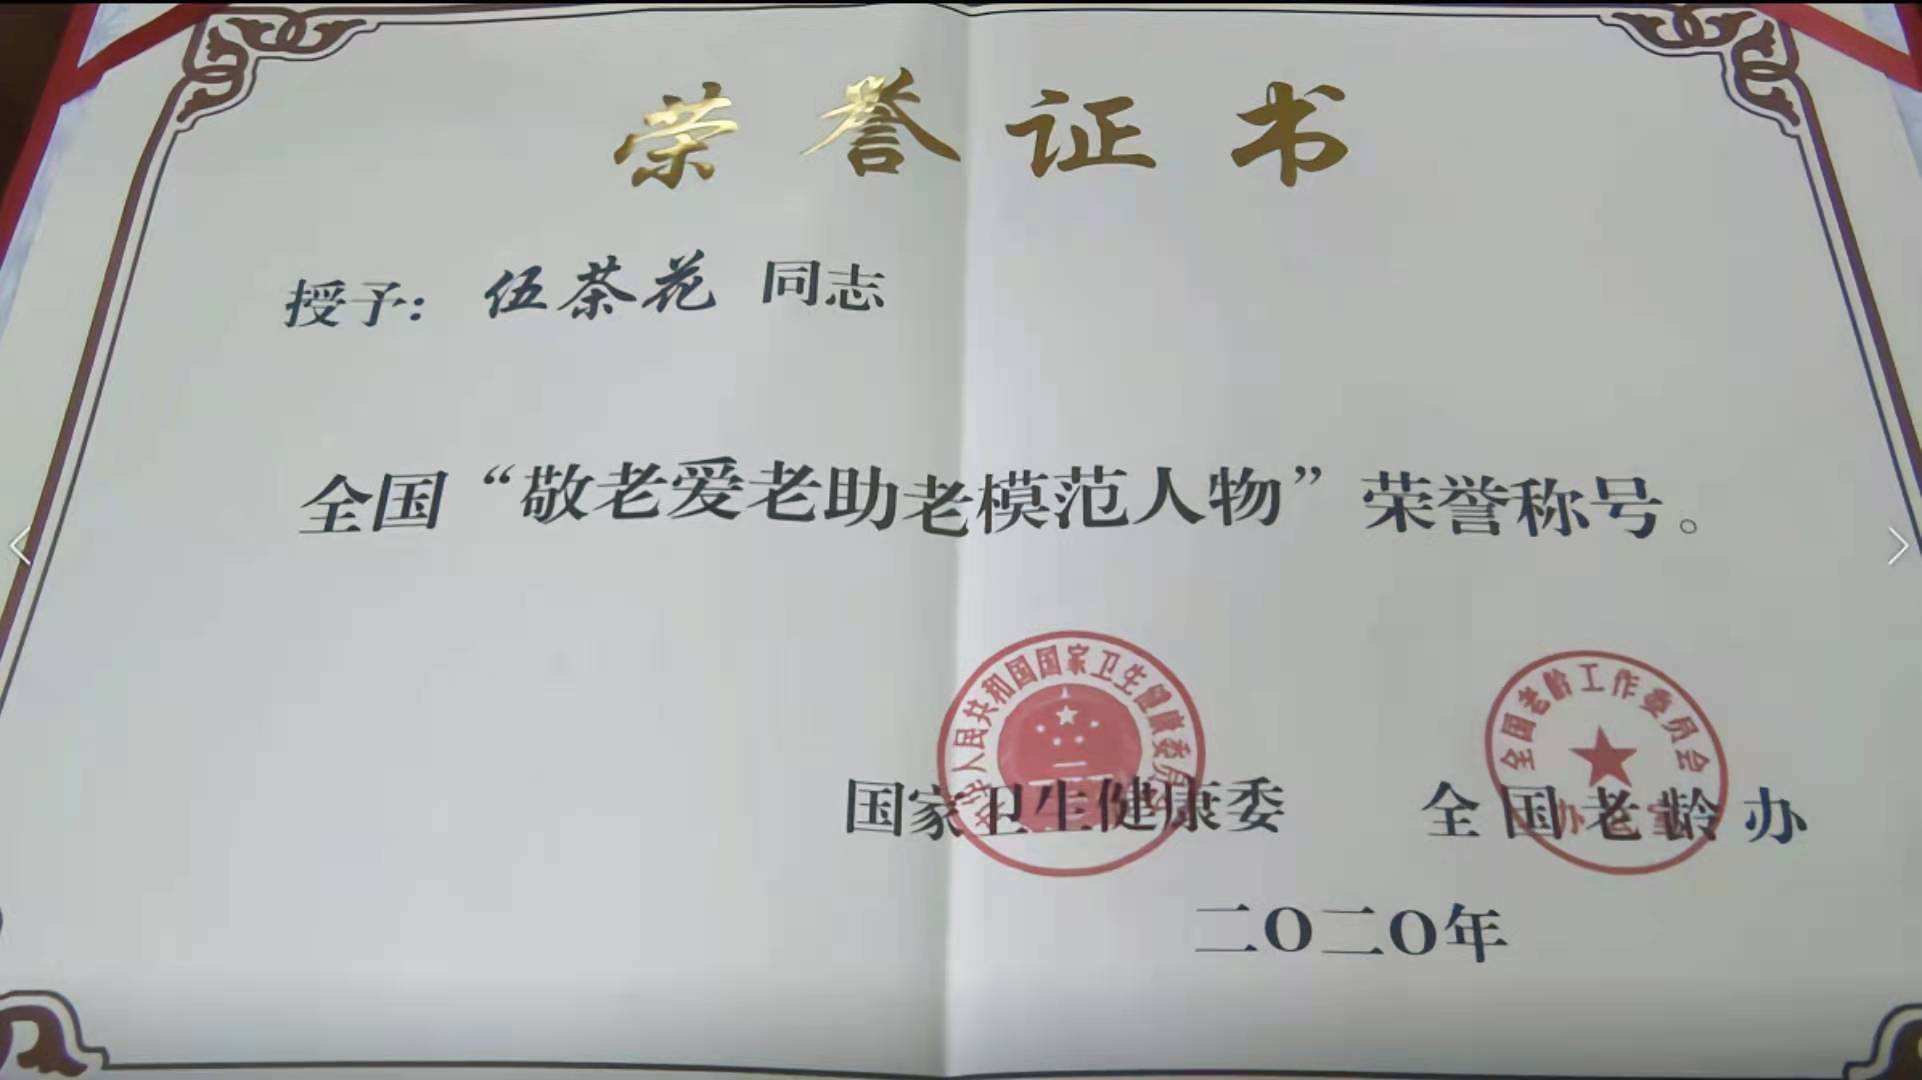 荣誉证书
授予：伍茶花 同志
全国“敬老爱老助老模范人物”荣誉称号。
中华人民共和国国家卫生健康委员会
全国老龄工作委员会
办公室
国家卫生健康委 全国老龄办
二〇二〇年